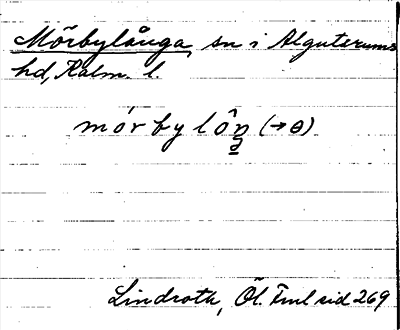 Mörbylånga, sn i Algutsrums
hd, Kalm. l.
mórbylôŋ̲a̲ (→ɵ)
Lindroth, Öl. Fml sid 269